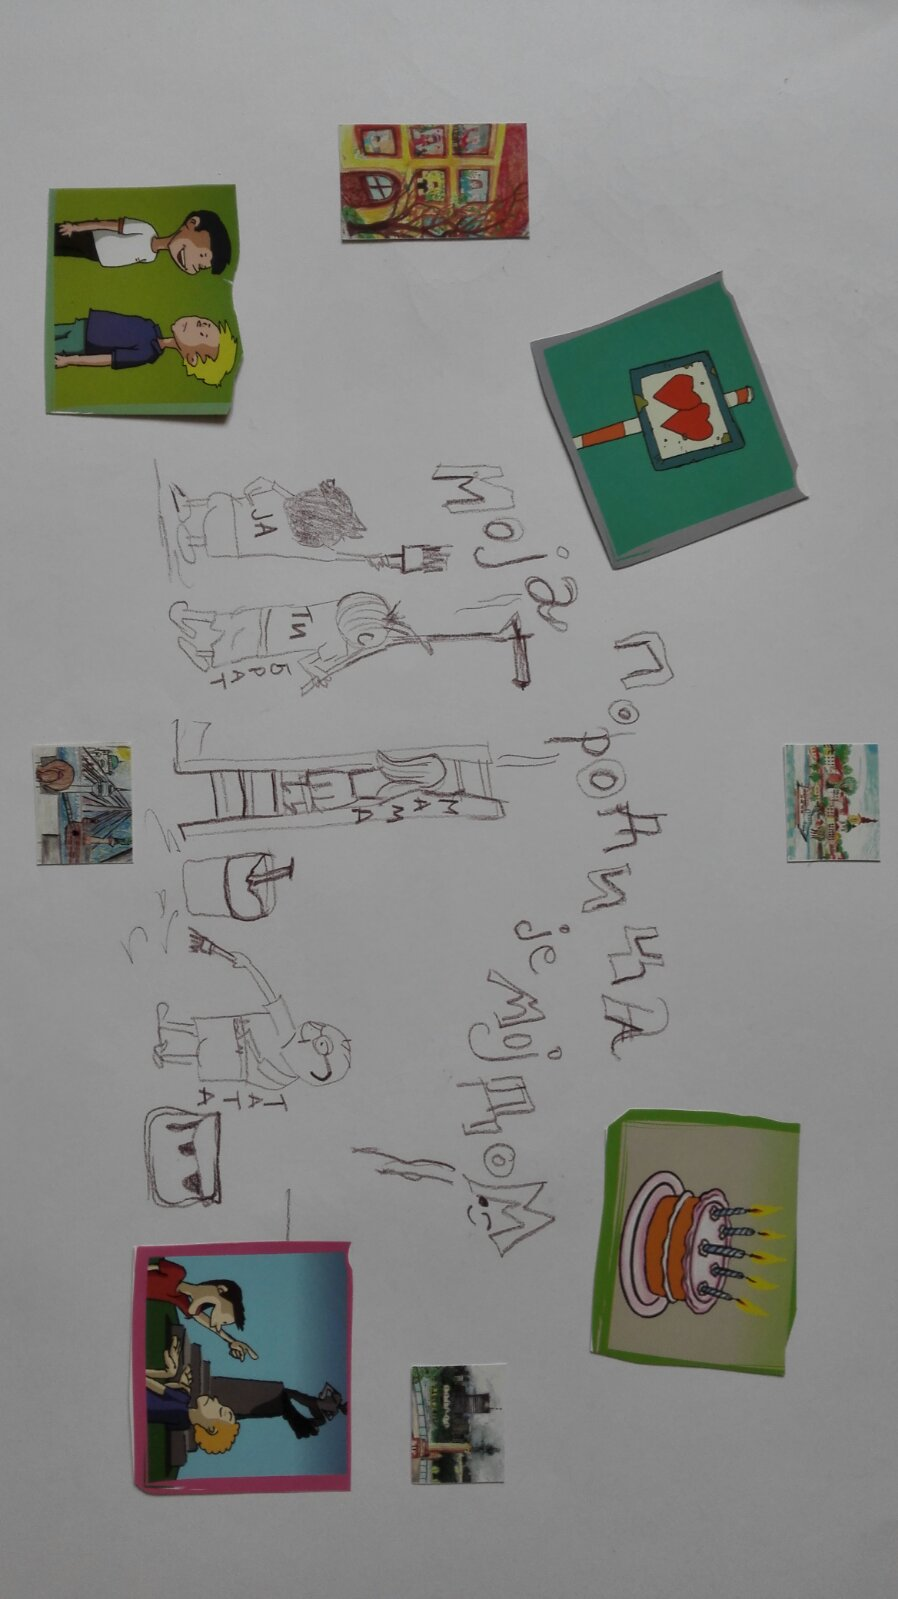 Моја
породицца
је мој дом
ЈА
ТИ
БРАТ
МАМА
ТАТА